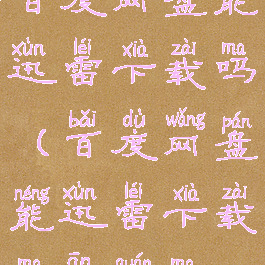 百度网盘能
xùn léi xià zài ma
迅雷下载吗
bǎi dù wǎng pán
（百度网盘
néng xùn léi xià zài
能迅雷下载
ma ān quán ma